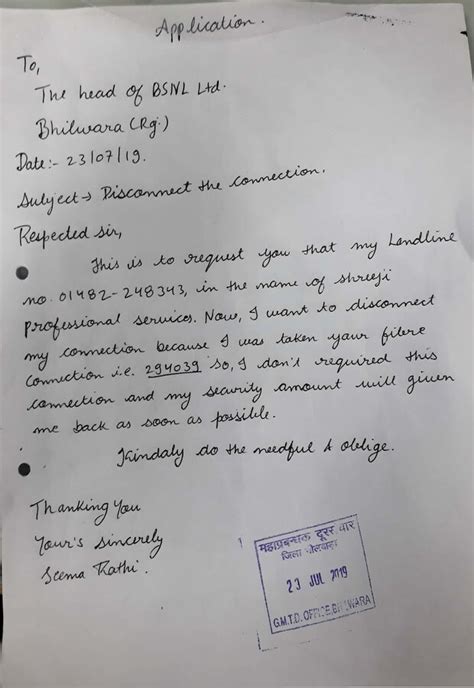 Application.
To,
The head of BSNL Ltd.
Bhilwara (Rg.)
Date:- 23/07/19.
Subject → Disconnect the connection.
Respected sir,
This is to request you that my Landline
no. 01482-248343, in the name of shreeji
professional services. Now, I want to disconnect
my connection because I was taken your fibre
connection i.e. 294039 so, I don't required this
connection and my security amount will given
me back as soon as possible.
Kindaly do the needful & oblige.
Thanking You
Your's sincerely
Seema Rathi.
महाप्रबन्धक दूर
जिला भीलवाड़ा
23 JUL 2019
G.M.T.D. OFFICE, BHILWARA